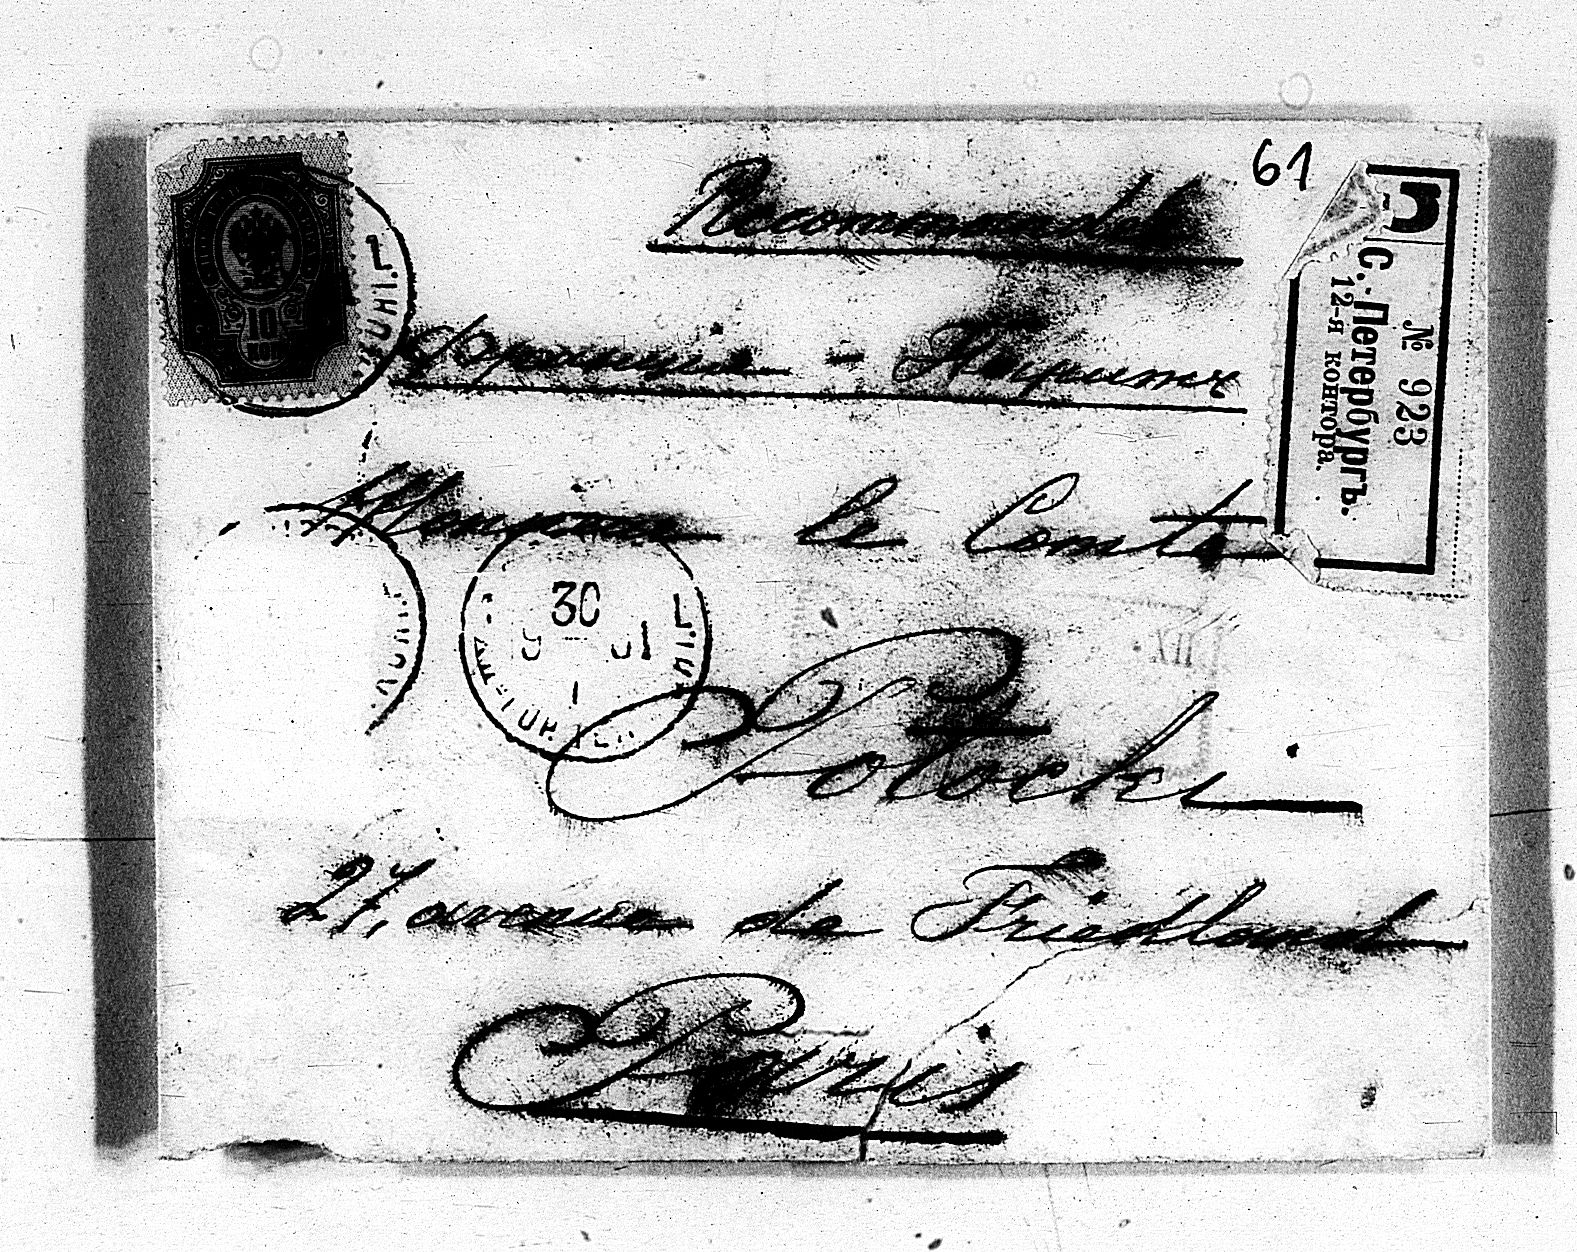 Recommandée
61
Франція - Парижъ
Monsieur le Comte
Potocki
27, avenue de Friedland
Paris
R
№ 923
С.-Петербургъ.
12-я контора.
30
10